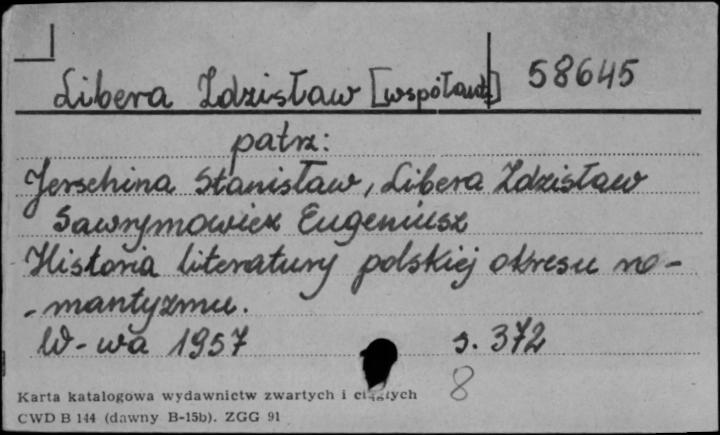 Libera Zdzisław [współaut] 58645
patrz:
Jerschina Stanisław, Libera Zdzisław
Sawrymowicz Eugeniusz
Historia literatury polskiej okresu ro-
-mantyzmu.
W-wa 1957 s. 372
8
Karta katalogowa wydawnictw zwartych i ciągłych
CWD B 144 (dawny B-15b). ZGG 91